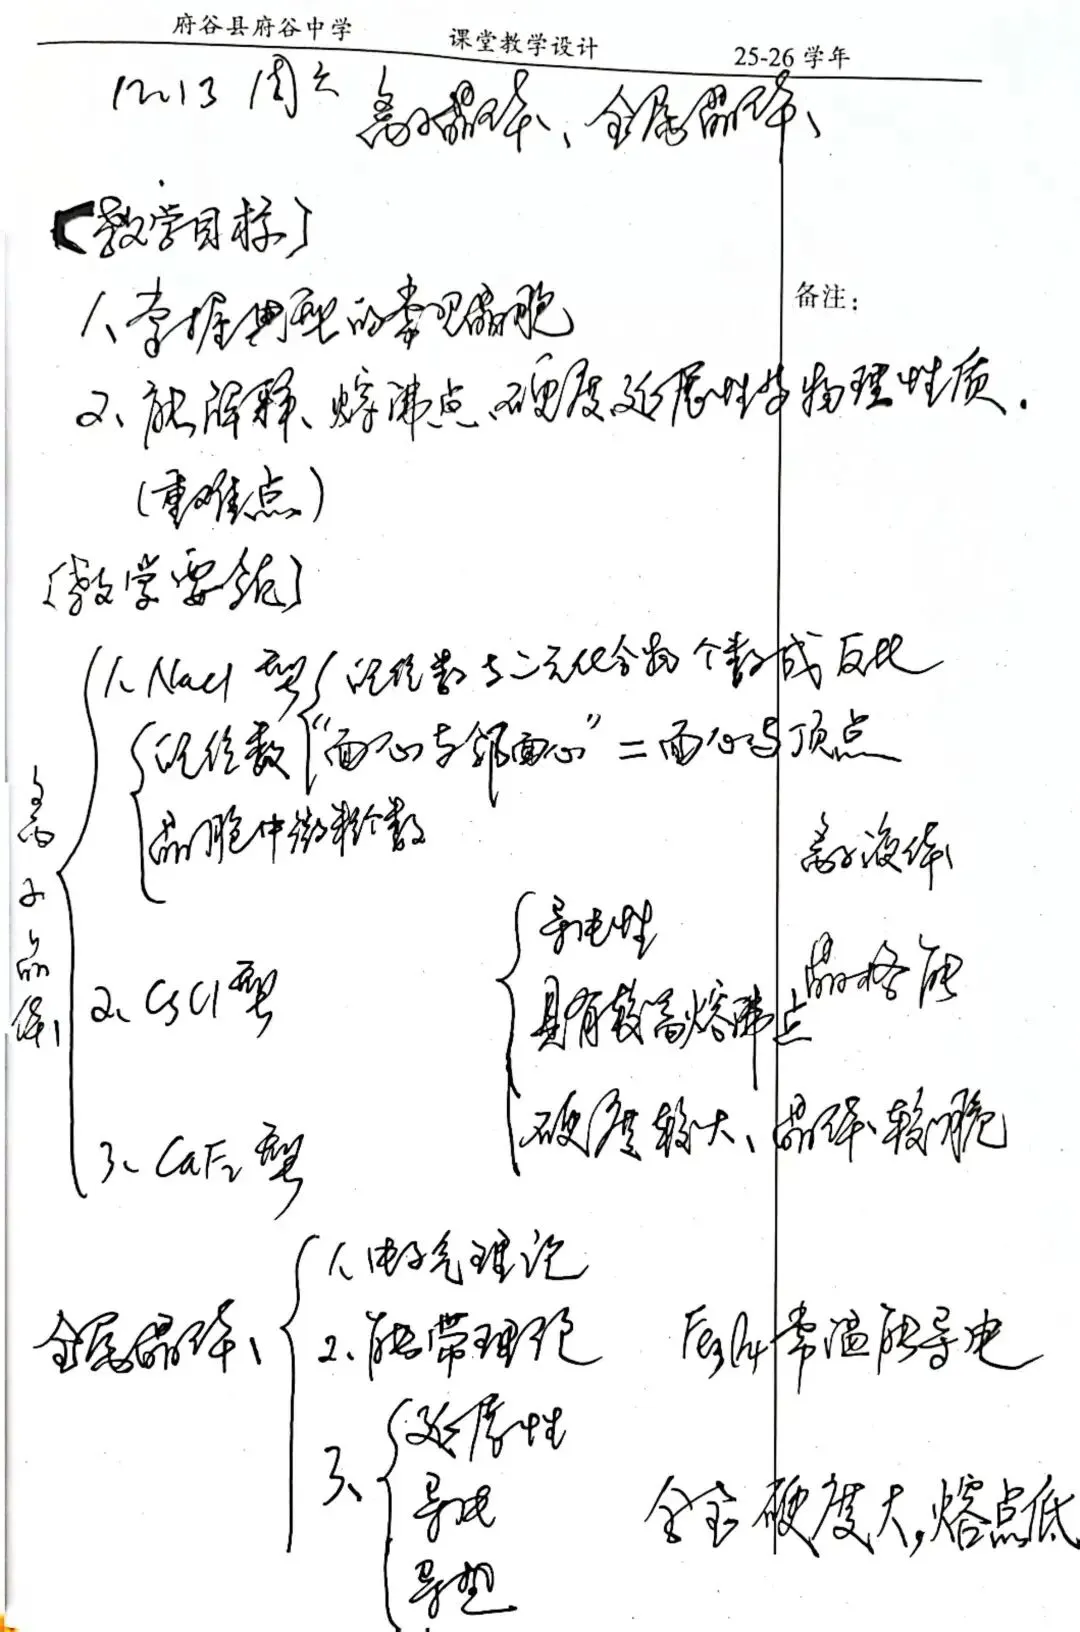 府谷县府谷中学 课堂教学设计 25-26 学年
12.13 周六 离子晶体、金属晶体、
【教学目标】
备注：
1、掌握典型的常见晶胞
2、能解释、熔沸点、硬度、延展性等物理性质.
(重难点)
[教学要领]
离子晶体、
1、NaCl 型 配位数与二元化合物个数成反比
配位数 "面心与邻面心" = 面心与顶点
晶胞中微粒个数
离子液体、
导电性
晶格能
2、CsCl 型 具有较高熔沸点
硬度较大、晶体、较脆
3、CaF₂ 型
金属晶体、
1、电子气理论
2、能带理论 Fe₃O₄ 常温能导电
3、延展性
导电 合金 硬度大，熔点低
导热